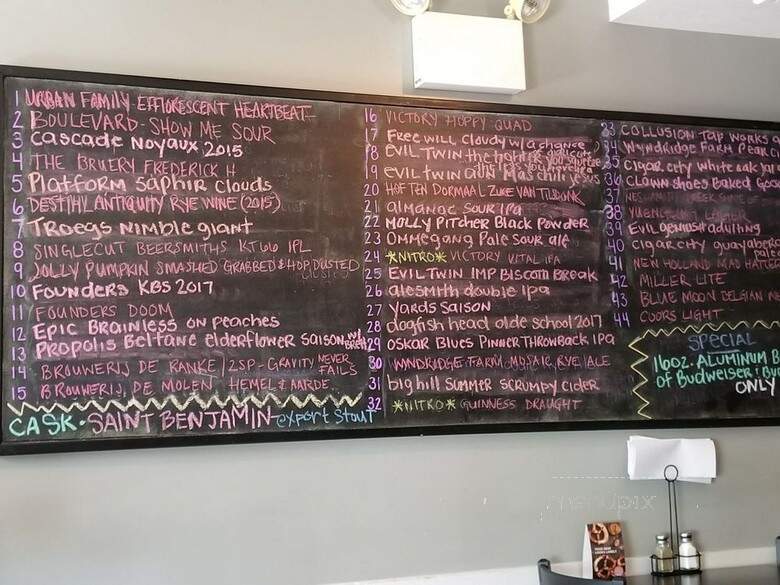 1 URBAN FAMILY EFFLORESCENT HEARTBEAT
2 BOULEVARD-SHOW ME SOUR
3 cascade Noyaux 2015
4 THE BRUERY FREDERICK H
5 Platform Saphir Clouds
6 DESTIHL ANTIQUITY RYE WINE (2015)
7 TROEGS NIMBLE GIANT
8 SINGLECUT BEERSMITHS KT66 IPL
9 JOLLY PUMPKIN SMASHED GRABBED & HOP DUSTED
10 Founders KBS 2017
11 FOUNDERS DOOM
12 Epic Brainless on peaches
13 Propolis Beltane elderflower Saison w/
14 BROUWERIJ DE RANKE/2SP-GRAVITY NEVER FAILS
15 BROUWERIJ DE MOLEN HEMEL & AARDE
CASK • SAINT BENJAMIN export Stout
16 VICTORY HOPPY QUAD
17 Free will cloudy w/a chance
18 EVIL TWIN the
19 evil twin
20 HOF TEN DORMAAL ZURE VAN TILDONK
21 almanac SOUR IPA
22 MOLLY PITCHER Black Powder
23 Ommegang Pale Sour ale
24 *NITRO* VICTORY VITAL IPA
25 EVIL TWIN IMP BISCOTTI BREAK
26 alesmith double ipa
27 yards saison
28 dogfish head olde school 2017
29 OSKAR BLUES PINNER THROWBACK IPA
30 WYNDRIDGE FARM MOSAIC RYE ALE
31 big hill SUMMER SCRUMPY CIDER
32 *NITRO* GUINNESS DRAUGHT
33 COLLUSION TAP WORKS
34 Wyndridge Farm Pear
35 Cigar city white oak
36 CLOWN SHOES Baked Good
37
38 YUENGLING LAGER
39 Evil genius adulting
40 cigar city guayabera
41 NEW HOLLAND MAD HATTER
42 MILLER LITE
43 BLUE MOON BELGIAN
44 COORS LIGHT
SPECIAL
16oz. ALUMINUM
of Budweiser
ONLY